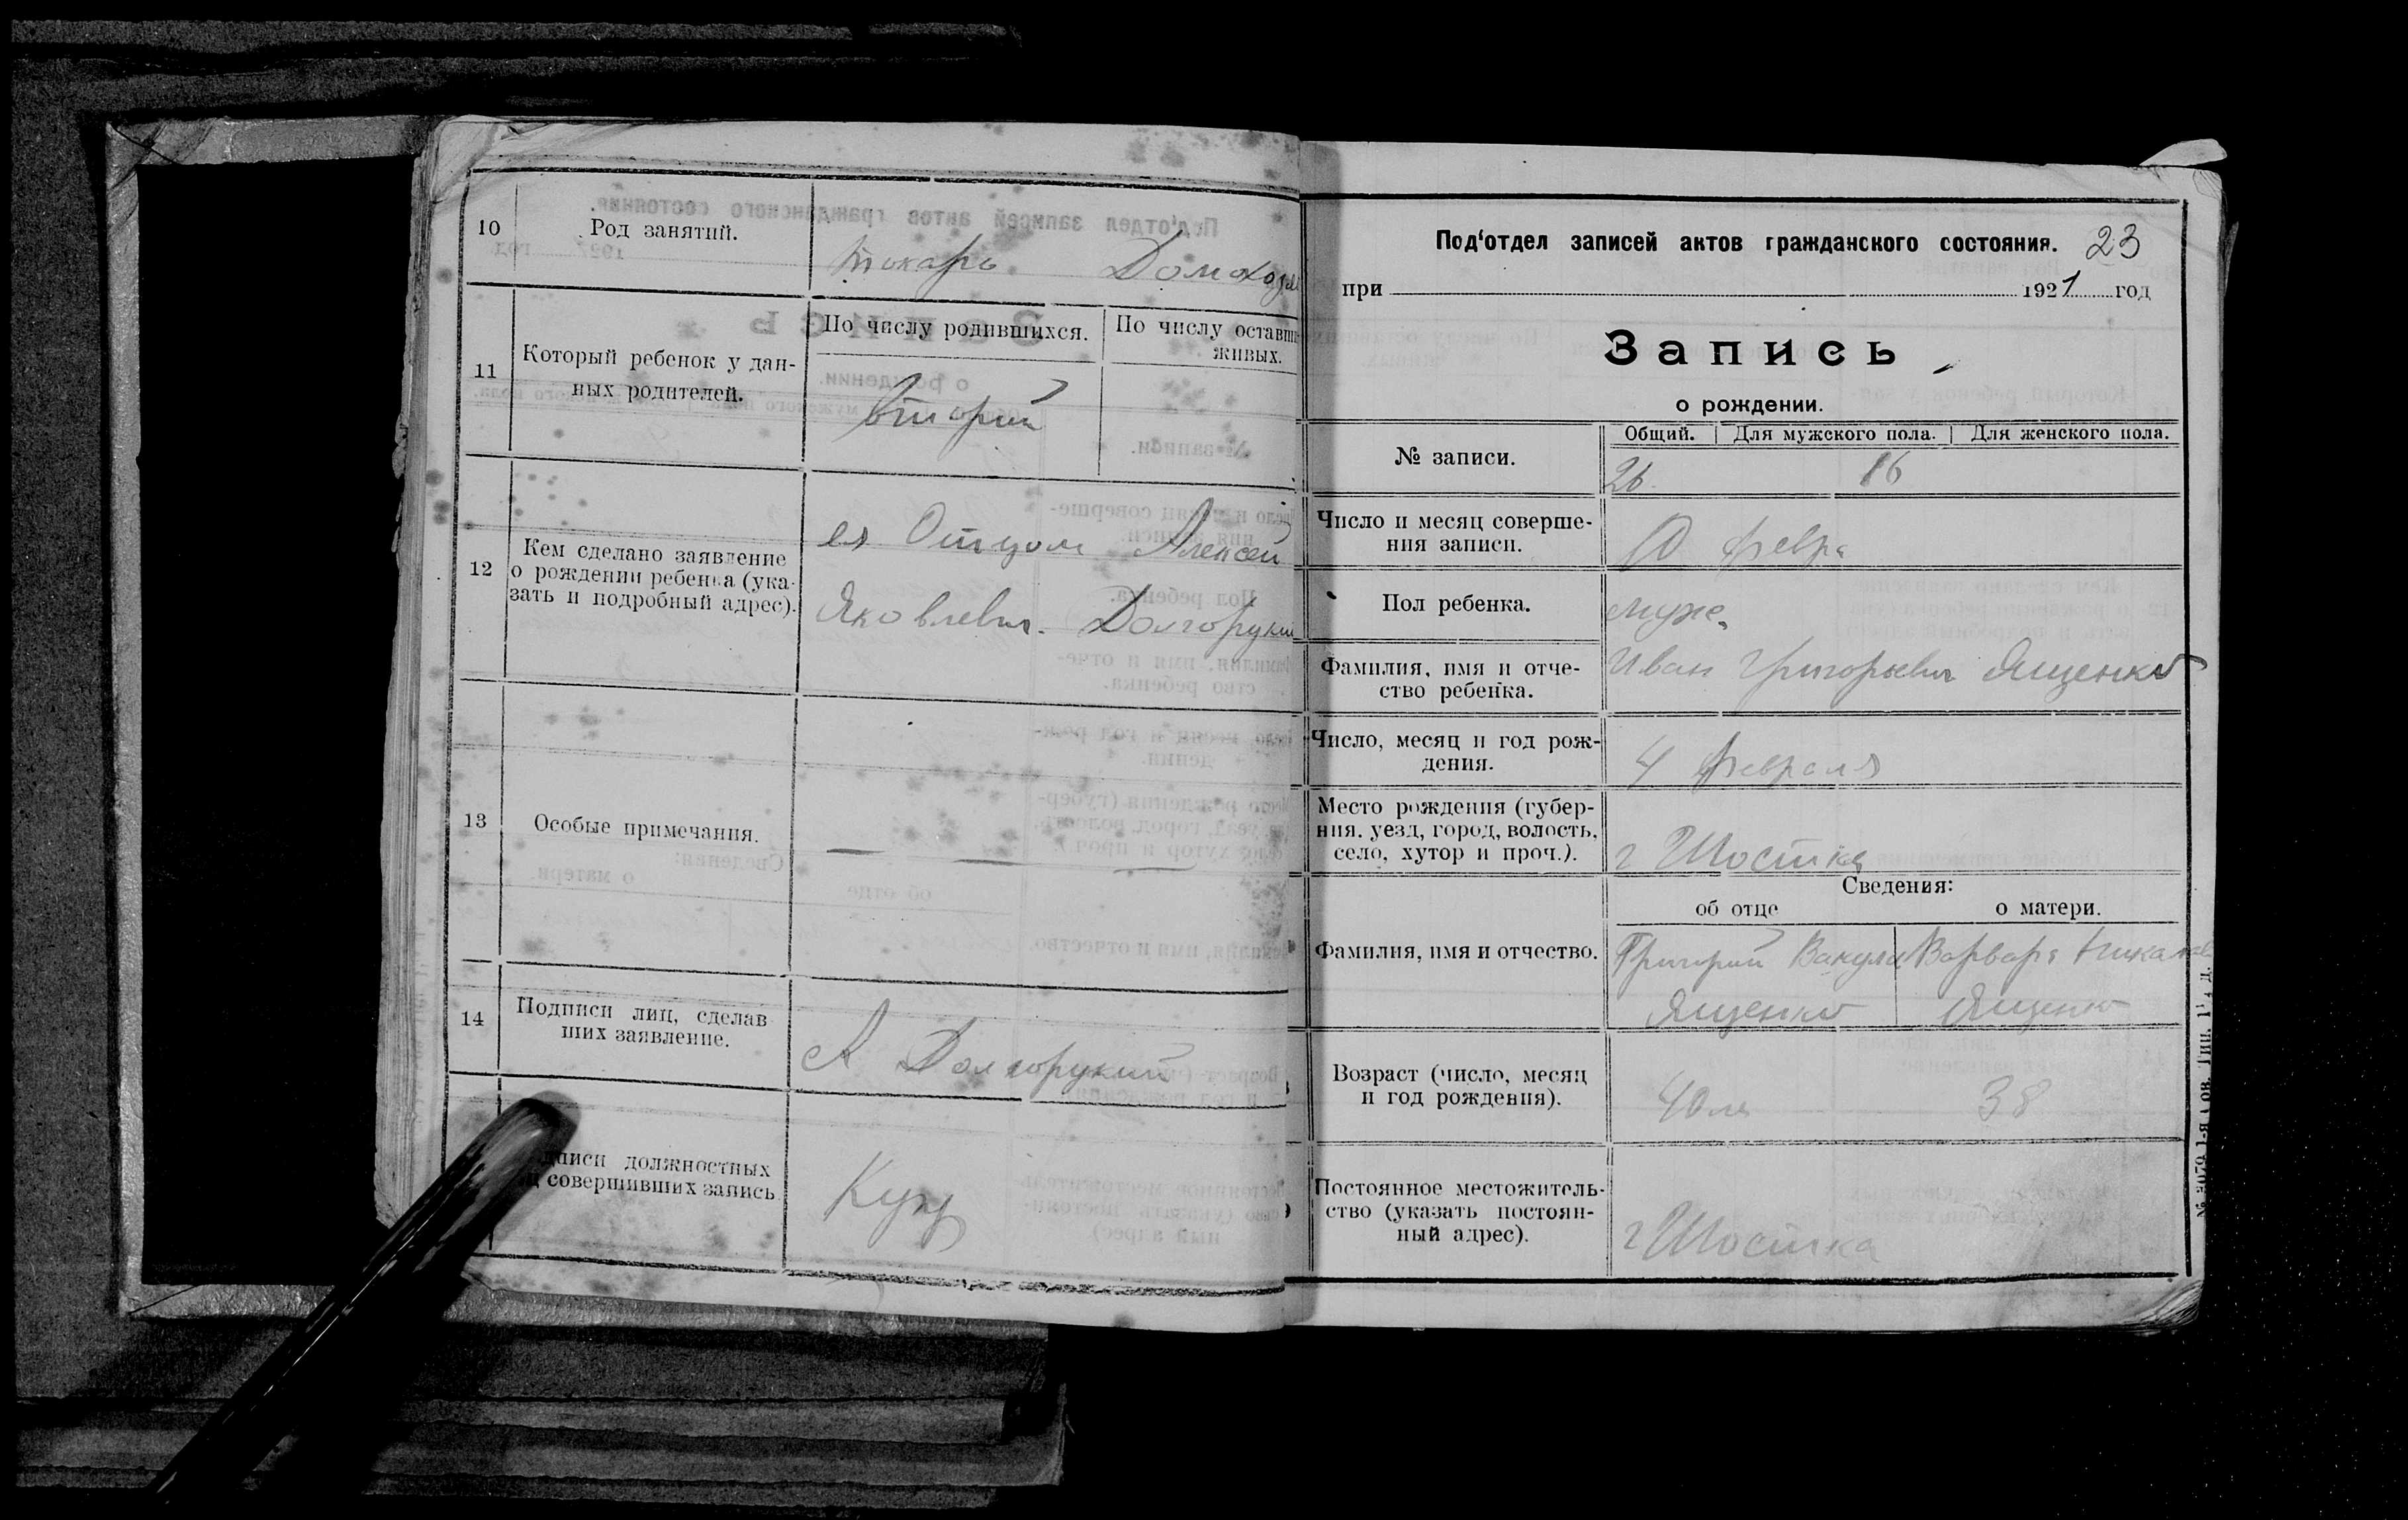 10
Род занятий.
токарь Домохозя
11
Который ребенок у дан-
ных родителей.
По числу родившихся.
По числу оставши
живых.
Второй
12
Кем сделано заявление
о рождении ребенка (ука-
зать и подробный адрес).
ея Отцом Алексей
Яковлевич. Долгорукий
13
Особые примечания.
— — —
14
Подписи лиц, сделав
ших заявление.
А Долгорукий
дписи должностных
ц совершивших запись
Под‘отдел записей актов гражданского состояния. 23
при 1921 год
Запись
о рождении.
№ записи.
Общий. Для мужского пола. Для женского пола.
26 16
Число и месяц соверше-
ния записи.
10 февра
Пол ребенка.
муж.
Фамилия, имя и отче-
ство ребенка.
Иван Григорьевич Ященко
Число, месяц и год рож-
дения.
4 февраля
Место рождения (губер-
ния, уезд, город, волость,
село, хутор и проч.).
г Шостка
Сведения:
об отце о матери.
Фамилия, имя и отчество.
Григорий Вакули Варвара Никалав
Ященко Ященко
Возраст (число, месяц
и год рождения).
40 ле 38
Постоянное местожитель-
ство (указать постоян-
ный адрес).
г Шостка